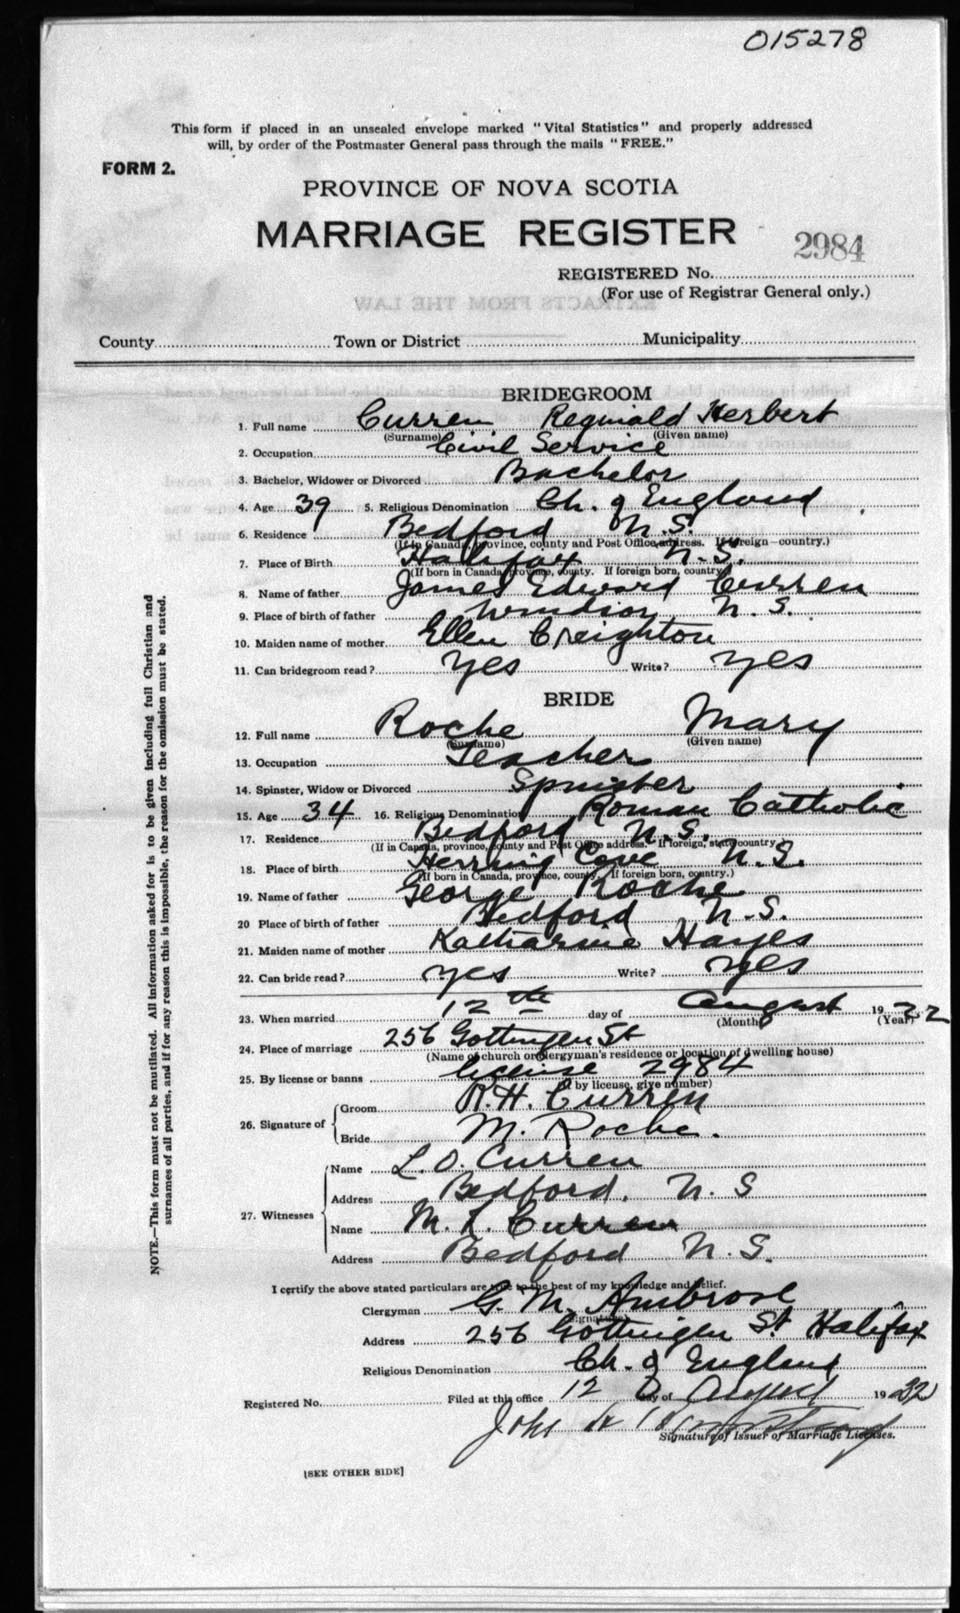 015278
This form if placed in an unsealed envelope marked "Vital Statistics" and properly addressed
will, by order of the Postmaster General pass through the mails "FREE."
FORM 2.
PROVINCE OF NOVA SCOTIA
MARRIAGE REGISTER
2984
REGISTERED No.
(For use of Registrar General only.)
EXTRACTS FROM THE LAW
County Town or District Municipality
BRIDEGROOM
1. Full name Curren Reginald Herbert
(Surname) (Given name)
2. Occupation Civil Service
3. Bachelor, Widower or Divorced Bachelor
4. Age 39 5. Religious Denomination Ch. of England
6. Residence Bedford N.S.
(If in Canada, province, county and Post Office address. If foreign—country.)
7. Place of Birth Halifax N.S.
(If born in Canada, province, county. If foreign born, country)
8. Name of father James Edward Curren
9. Place of birth of father Windsor N.S.
10. Maiden name of mother Ellen Creighton
11. Can bridegroom read? yes Write? yes
BRIDE
12. Full name Roche Mary
(Surname) (Given name)
13. Occupation Teacher
14. Spinster, Widow or Divorced Spinster
15. Age 34 16. Religious Denomination Roman Catholic
17. Residence Bedford N.S.
(If in Canada, province, county and Post Office address. If foreign, state country)
18. Place of birth Herring Cove N.S.
(If born in Canada, province, county. If foreign born, country.)
19. Name of father George Roche
20 Place of birth of father Bedford N.S.
21. Maiden name of mother Katharine Hayes
22. Can bride read? yes Write? yes
23. When married 12th day of August 1932
(Month) (Year)
24. Place of marriage 256 Gottingen St
(Name of church or clergyman's residence or location of dwelling house)
25. By license or banns license 2984
(If by license, give number)
26. Signature of Groom R.H. Curren
Bride M. Roche.
27. Witnesses Name L.O. Curren
Address Bedford. N.S
Name M. L. Curren
Address Bedford N.S.
I certify the above stated particulars are true to the best of my knowledge and belief.
Clergyman G. M. Ambrose
(Signature)
Address 256 Gottingen St Halifax
Religious Denomination Ch. of England
Registered No. Filed at this office 12 day of August 1932
John
Signature of Issuer of Marriage Licenses.
[SEE OTHER SIDE]
NOTE.—This form must not be mutilated. All information asked for is to be given including full Christian and
surnames of all parties, and if for any reason this is impossible, the reason for the omission must be stated.